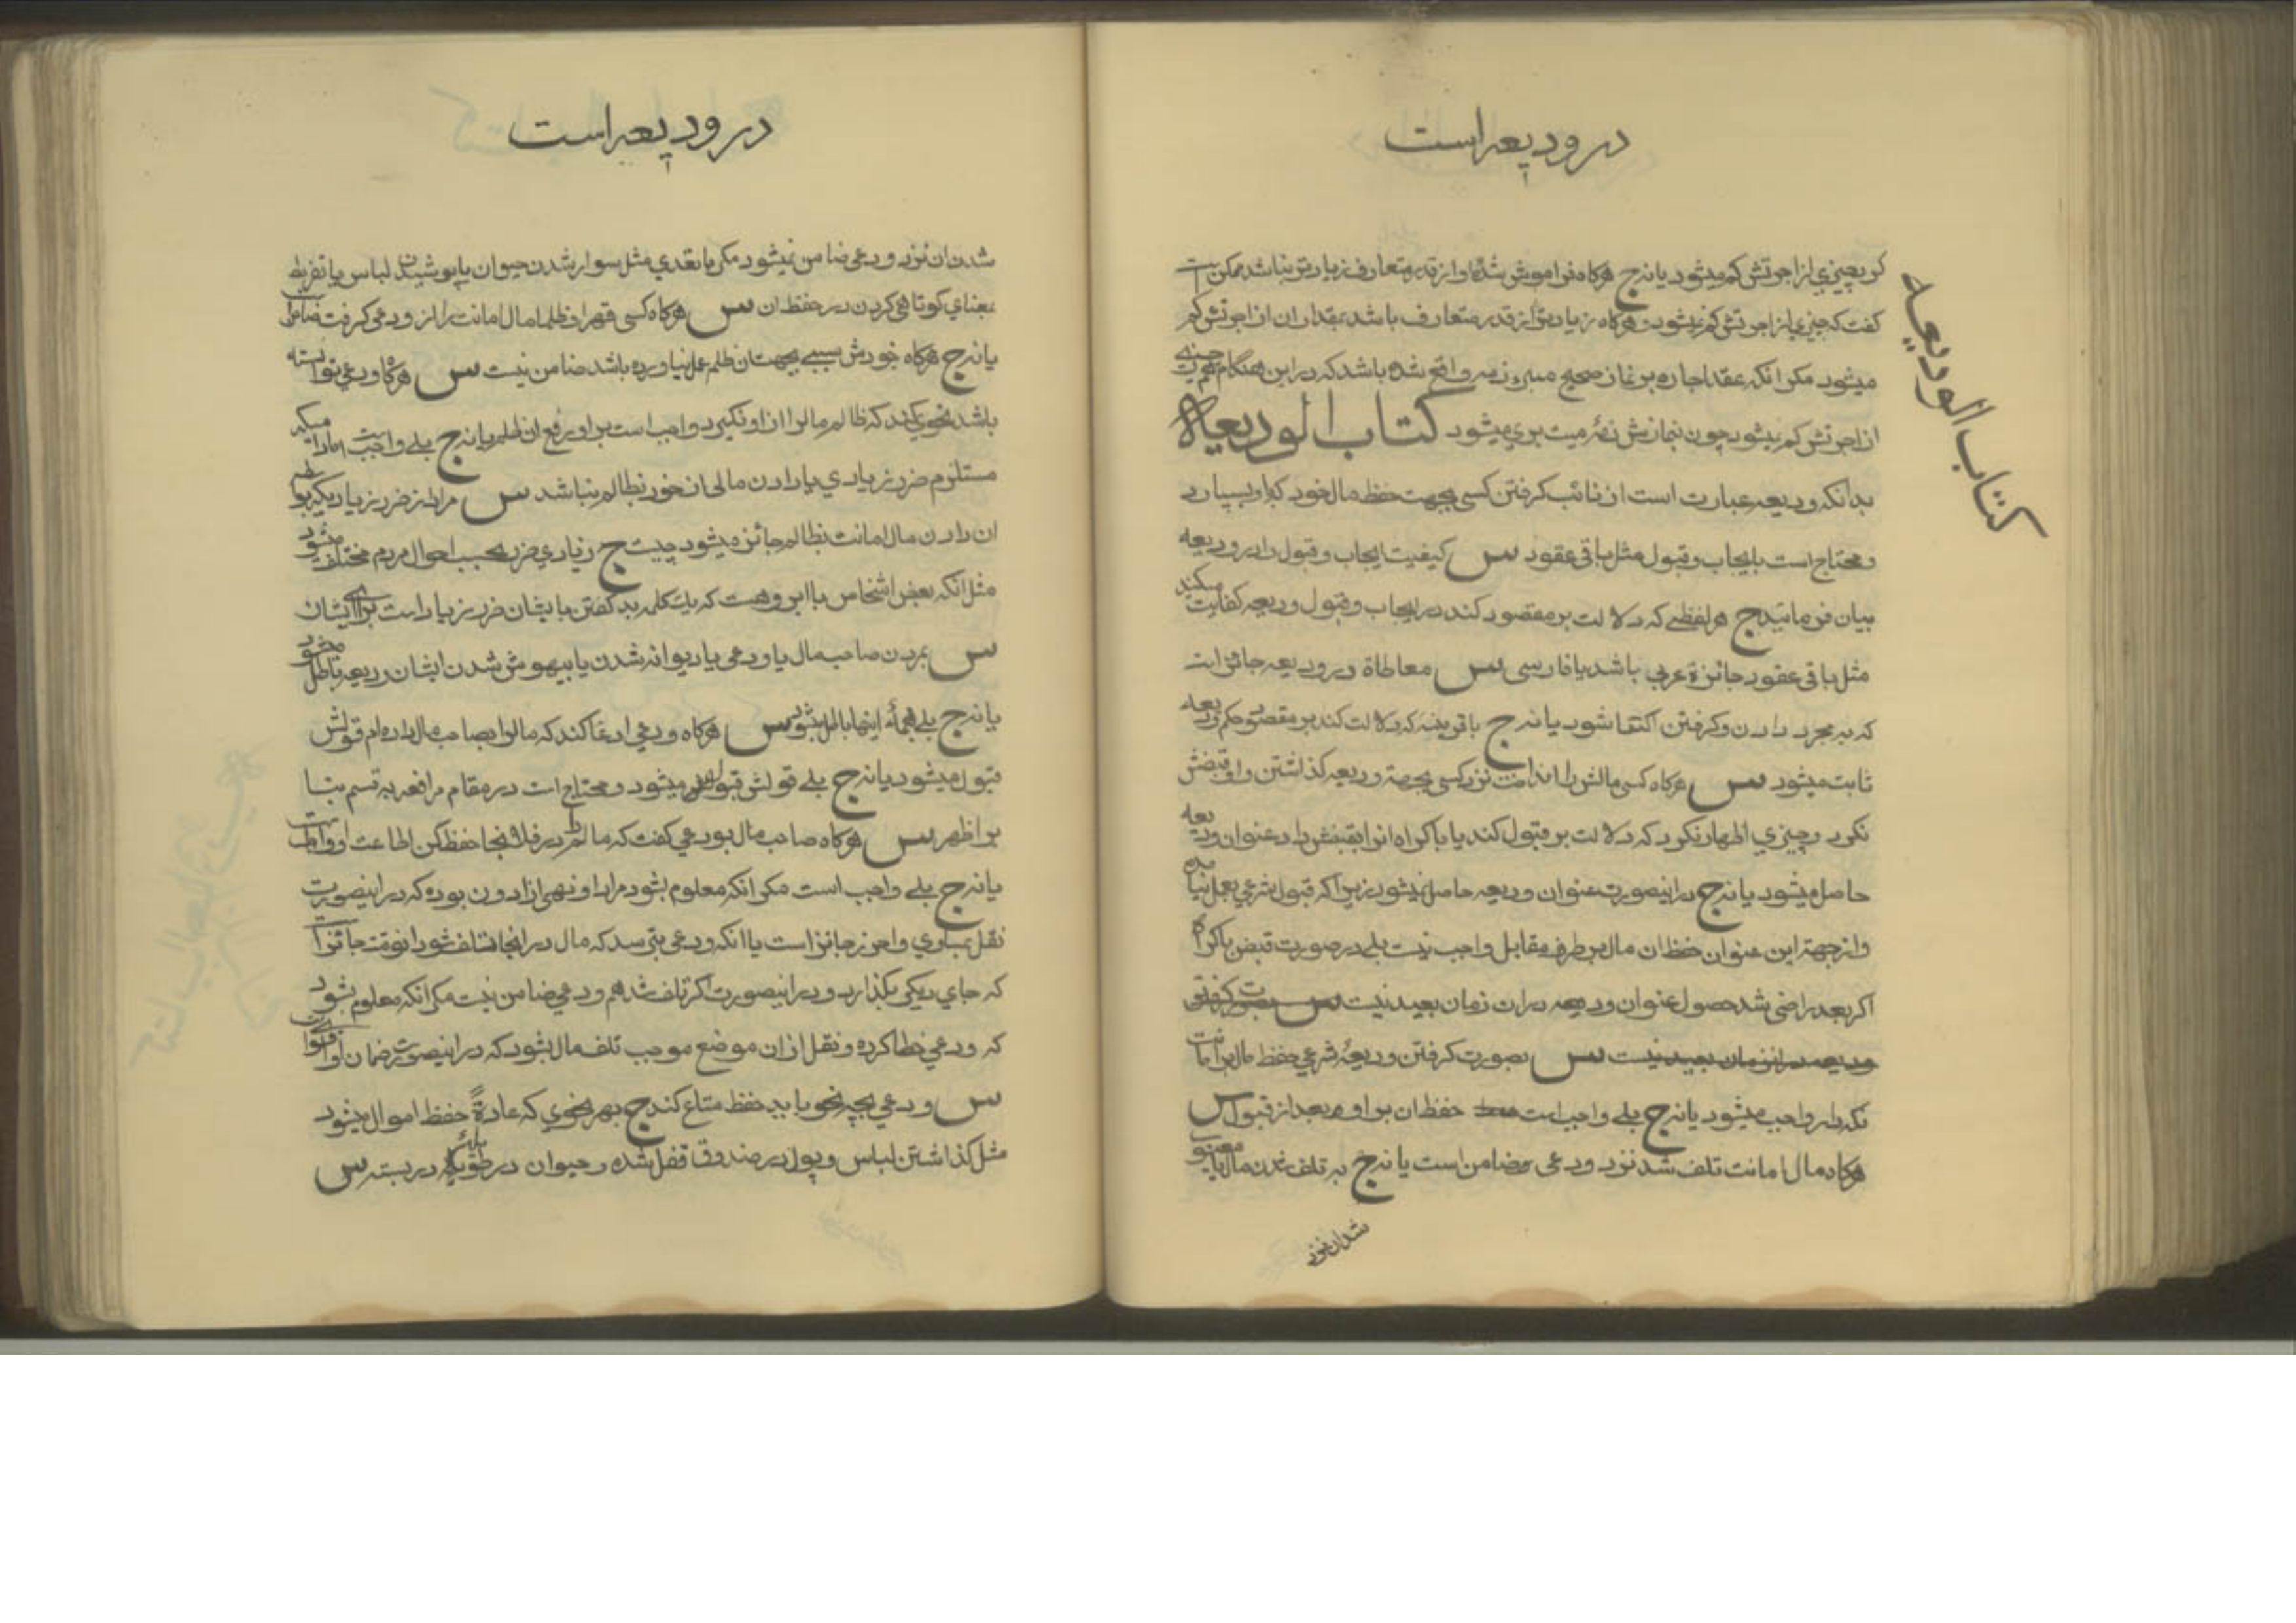 در ودیعه است
کتاب الودیعه
کر بچیزی از اجرتش کم میشود یا نه ج هرکاه فراموش شده او از قدر متعارف زیادتر نباشد ممکن است
کفت که چیزی از اجرتش کم نمیشود هرکاه زیادتر از قدر متعارف باشد بمقدار ان از اجرتش کم
میشود مکر انکه عقد اجاره بر نماز صحیح مبرء ذمه واقع شده باشد که در این هنکام هم چیزی
از اجرتش کم نمیشود چون نمازش ذمهٔ میت بری میشود کتاب الودیعة
بدانکه ودیعه عبارت است از نائب کرفتن کسی بجهت حفظ مال خود که باو بسپارد
و محتاج است بایجاب و قبول مثل باقی عقود س کیفیت ایجاب و قبول را در ودیعه
بیان فرمائید ج هر لفظی که دلالت بر مقصود کند در ایجاب و قبول ودیعه کفایت میکند
مثل باقی عقود جائزة عربی باشد یا فارسی س معاطاة در ودیعه جائز است
که به مجرد دادن و کرفتن اکتفا شود یا نه ج با قرینه که دلالت کند بر مقصود حکم ودیعه
ثابت میشود س هرکاه کسی مالش را انداخت نزد کسی بجهة ودیعه کذاشتن و او قبضش
نکرد و چیزی اظهار نکرد که دلالت بر قبول کند یا باکراه انرا بقبضش داد عنوان ودیعه
حاصل میشود یا نه ج در اینصورت عنوان ودیعه حاصل نمیشود زیرا که قبول شرعی بعمل نیامده
و از جهة این عنوان حفظ ان مال بر طرف مقابل واجب نیست بلی در صورت قبض باکراه
اکر بعد راضی شد حصول عنوان ودیعه در ان زمان بعید نیست س بصورت کرفتن
ودیعه در انزمان بعید نیست س بصورت کرفتن ودیعهٔ شرعی حفظ مال بر امانت
نکه دار واجب میشود یا نه ج بلی واجب است حفظ ان بر او بعد از قبول س
هرکاه مال امانت تلف شد نزد ودعی ضامن است یا نه ج به تلف شدن مال یا معیوب
شدن ان نزد
در ودیعه است
شدن ان نزد ودعی ضامن نمیشود مکر با تعدی مثل سوار شدن حیوان یا پوشیدن لباس یا تفریط
بمعنای کوتاهی کردن در حفظ ان س هرکاه کسی قهرا و ظلما مال امانت را از ودعی کرفت ضامن است
یا نه ج هرکاه خودش سببی بجهت ان ظلم عمل نیاورده باشد ضامن نیست س هرکاه ودعی توانسته
باشد نحوی کند که ظالم مال را از او نکیرد واجب است بر او رفع ان ظلم یا نه ج بلی واجب است مادامیکه
مستلزم ضرر زیادی یا دادن مالی از خود بظالم نباشد س مراد از ضرر زیادیکه بواسطه
ان دادن مال امانت بظالم جائز میشود چیست ج زیادی ضرر بحسب احوال مردم مختلف میشود
مثل انکه بعض اشخاص با ابرو هست که یک کلمه بد کفتن بایشان ضرر زیاد است برای ایشان
س بمردن صاحب مال یا ودعی یا دیوانه شدن یا بیهوش شدن ایشان ودیعه باطل میشود
یا نه ج بلی بهمهٔ اینها باطل میشود س هرکاه ودعی ادعا کند که مال را بصاحب مال داده ام قولش
قبول میشود یا نه ج بلی قولش قبول میشود و محتاج است در مقام مرافعه به قسم بنا
بر اظهر س هرکاه صاحب مال بودعی کفت که مالم را در فلانجا حفظ کن اطاعت او واجب است
یا نه ج بلی واجب است مکر انکه معلوم بشود مراد او نهی از ادون بوده که در اینصورت
نقل بمساوی و احرز جائز است یا انکه ودعی بترسد که مال در انجا تلف شود انوقت جائز است
که جای دیکر بکذارد و در اینصورت اکر تلف شد هم ودعی ضامن نیست مکر انکه معلوم بشود
که ودعی خطا کرده و نقل از ان موضع موجب تلف مال بشود که در اینصورت ضمان او
س ودعی بچه نحو باید حفظ متاع کند ج بهر نحوی که عادةً حفظ اموال میشود
مثل کذاشتن لباس و پول در صندوق قفل شده و حیوان در طویله در بسته س